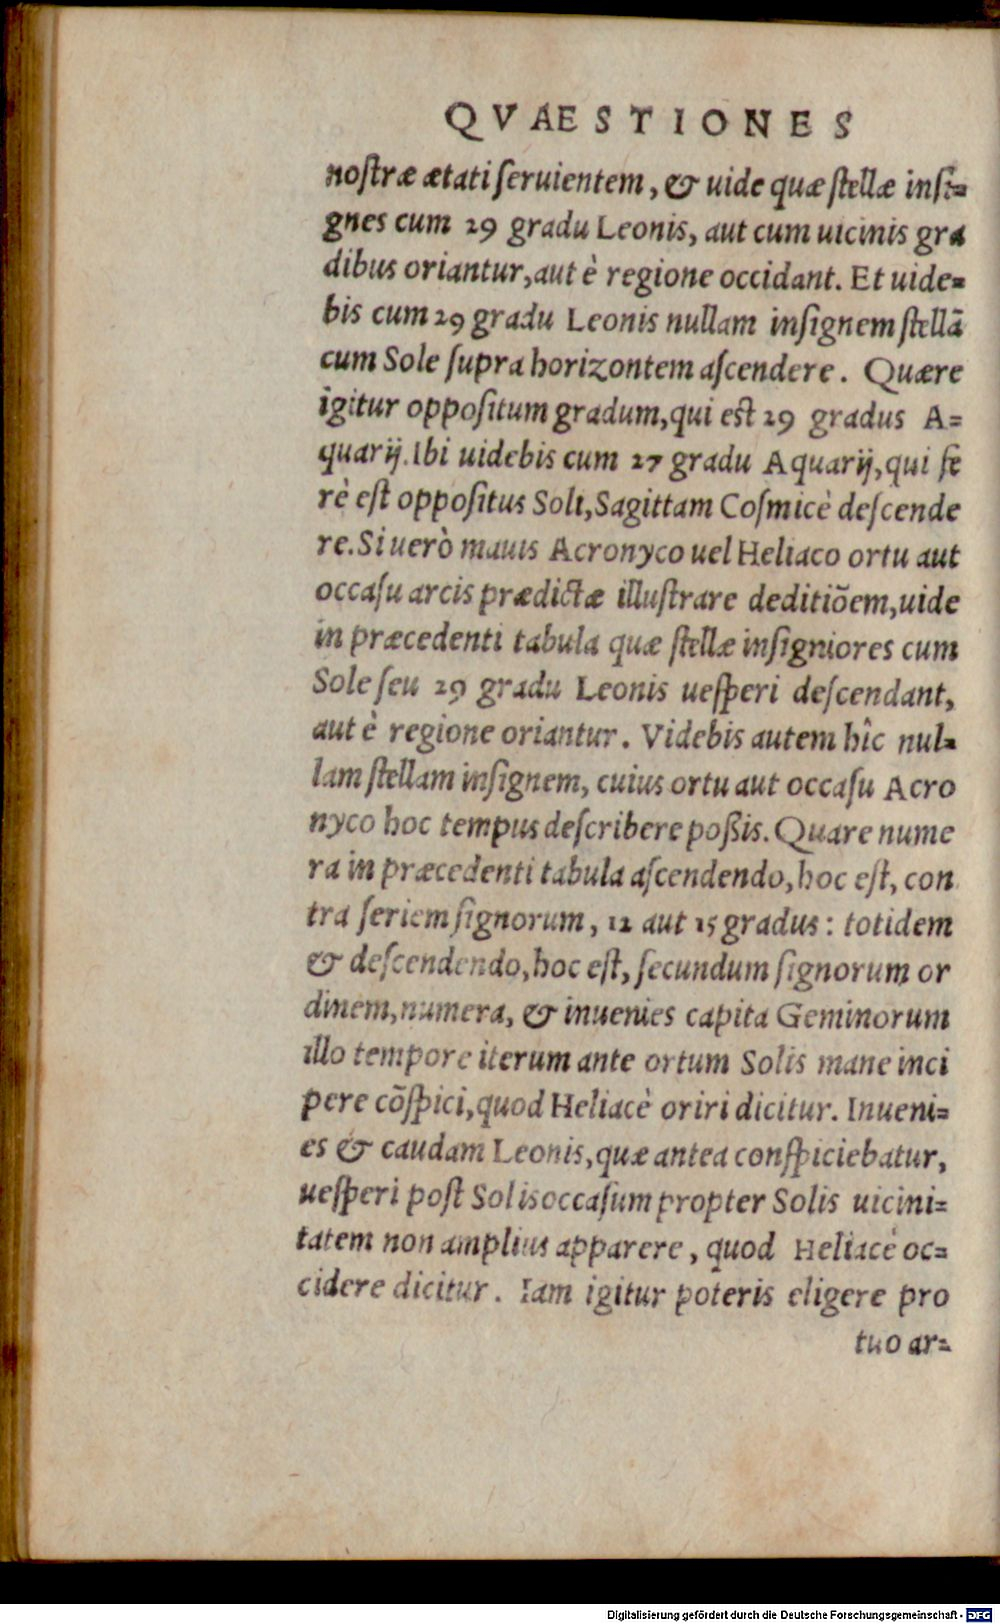 QVAESTIONES
nostræ ætati seruientem, & uide quæ stellæ insi=
gnes cum 29 gradu Leonis, aut cum uicinis gra
dibus oriantur, aut è regione occidant. Et uide=
bis cum 29 gradu Leonis nullam insignem stellã
cum Sole supra horizontem ascendere. Quære
igitur oppositum gradum, qui est 29 gradus A=
quarij. Ibi uidebis cum 27 gradu Aquarij, qui fe
rè est oppositus Soli, Sagittam Cosmicè descende
re. Si uerò mauis Acronyco uel Heliaco ortu aut
occasu arcis prædictæ illustrare deditiõem, uide
in præcedenti tabula quæ stellæ insigniores cum
Sole seu 29 gradu Leonis uesperi descendant,
aut è regione oriantur. Videbis autem hîc nul=
lam stellam insignem, cuius ortu aut occasu Acro
nyco hoc tempus describere poßis. Quare nume
ra in præcedenti tabula ascendendo, hoc est, con
tra seriem signorum, 12 aut 15 gradus: totidem
& descendendo, hoc est, secundum signorum or
dinem, numera, & inuenies capita Geminorum
illo tempore iterum ante ortum Solis mane inci
pere cõspici, quod Heliacè oriri dicitur. Inueni=
es & caudam Leonis, quæ antea conspiciebatur,
uesperi post Solis occasum propter Solis uicini=
tatem non amplius apparere, quod Heliacè oc=
cidere dicitur. Iam igitur poteris eligere pro
tuo ar=
Digitalisierung gefördert durch die Deutsche Forschungsgemeinschaft - DFG